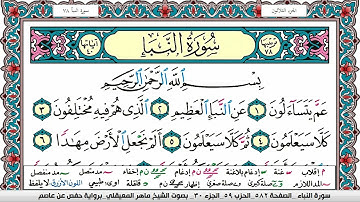 الجزء الثلاثون
سورة النبأ ٧٨
ترتيبها ٧٨
سُورَةُ النَّبَإِ
آياتها ٤٠
بِسْمِ اللَّهِ الرَّحْمَٰنِ الرَّحِيمِ
عَمَّ يَتَسَاءَلُونَ ١ عَنِ النَّبَإِ الْعَظِيمِ ٢ الَّذِي هُمْ فِيهِ مُخْتَلِفُونَ ٣
كَلَّا سَيَعْلَمُونَ ٤ ثُمَّ كَلَّا سَيَعْلَمُونَ ٥ أَلَمْ نَجْعَلِ الْأَرْضَ مِهَادًا ٦
سورة النباء الصفحة ٥٨٢ الحزب ٥٩ الجزء ٣٠ بصوت الشيخ ماهر المعيقلي برواية حفص عن عاصم